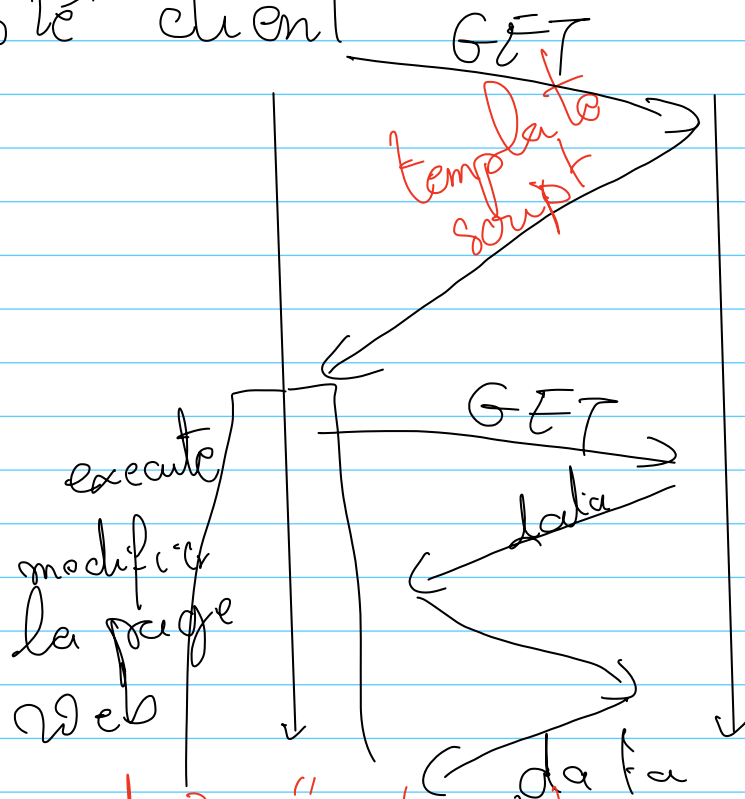 client
GET
template
script
GET
execute
data
modifier
la page
Web
data